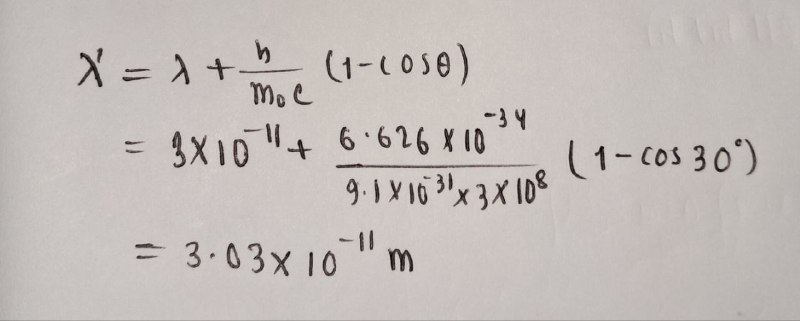 λ' = λ + h/m₀c (1-cosθ)
= 3×10⁻¹¹ + 6.626×10⁻³⁴/9.1×10⁻³¹×3×10⁸ (1-cos30°)
= 3.03×10⁻¹¹ m